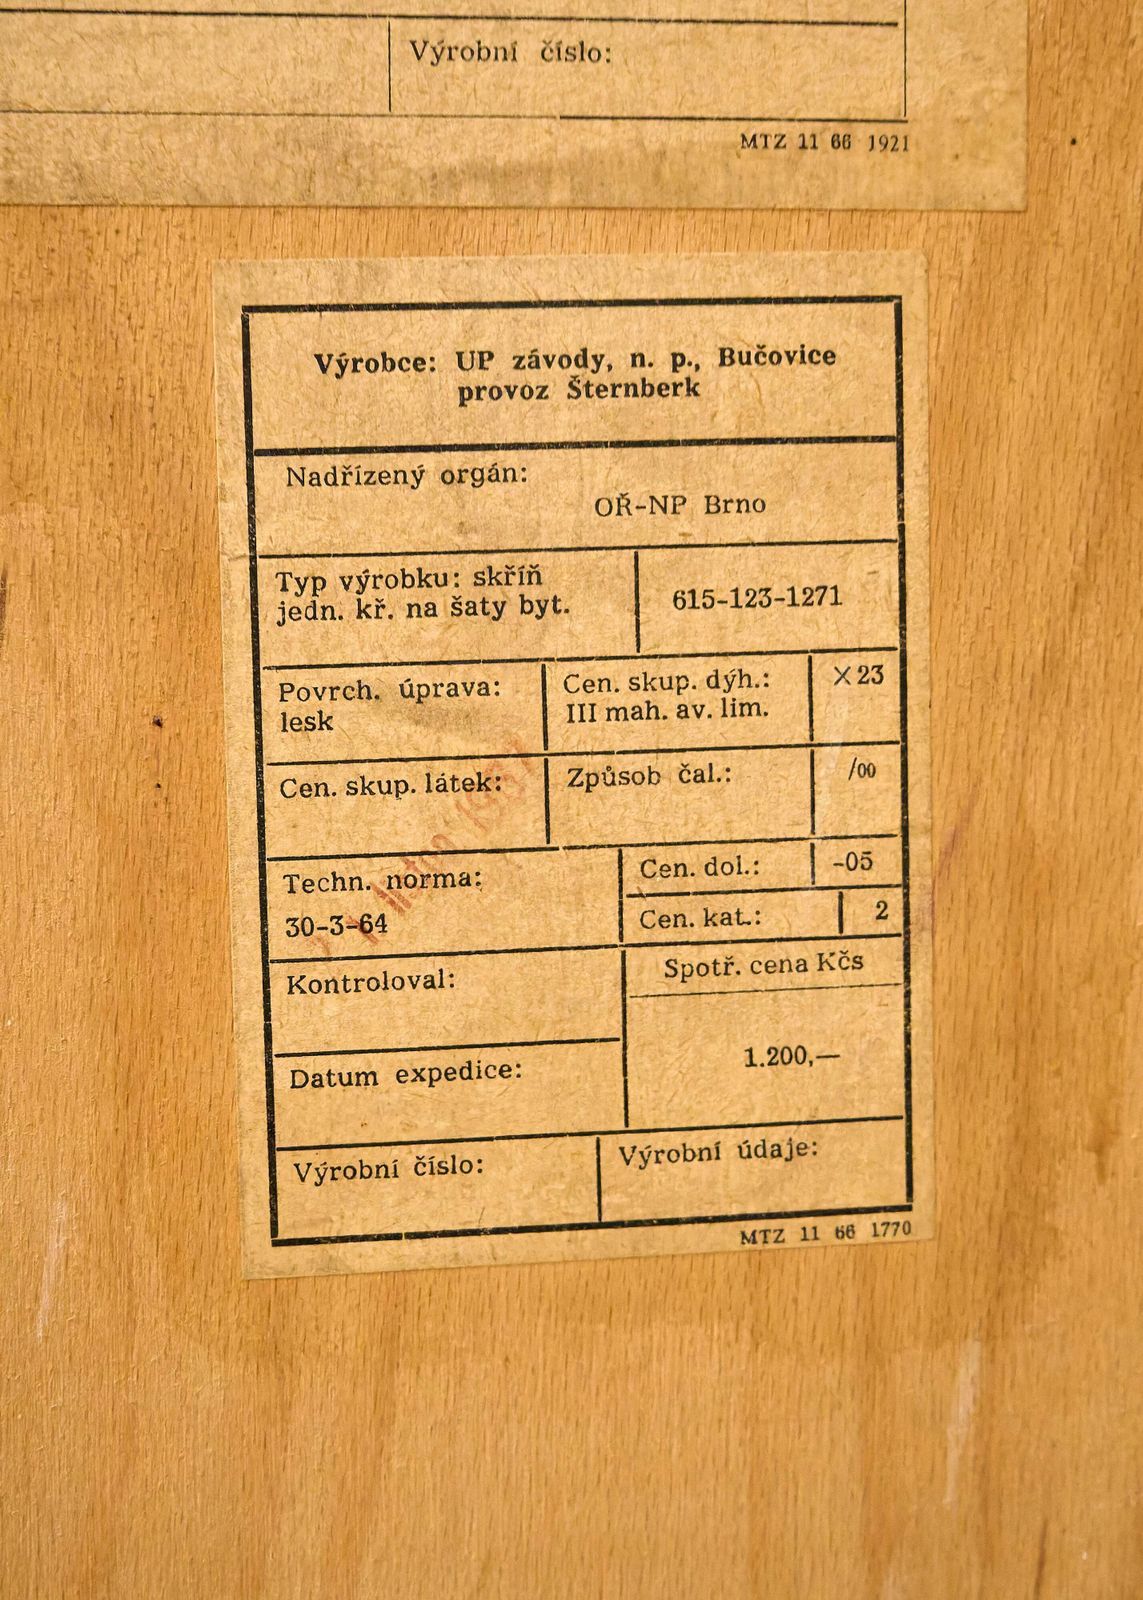 Výrobní číslo:
MTZ 11 66 1921
Výrobce: UP závody, n. p., Bučovice
provoz Šternberk
Nadřízený orgán:
OŘ-NP Brno
Typ výrobku: skříň
jedn. kř. na šaty byt.
615-123-1271
Povrch. úprava:
lesk
Cen. skup. dýh.:
III mah. av. lim.
X 23
Cen. skup. látek:
Způsob čal.:
/00
Techn. norma:
30-3-64
Cen. dol.:
-05
Cen. kat.:
2
Kontroloval:
Spotř. cena Kčs
1.200,—
Datum expedice:
Výrobní číslo:
Výrobní údaje:
MTZ 11 66 1770